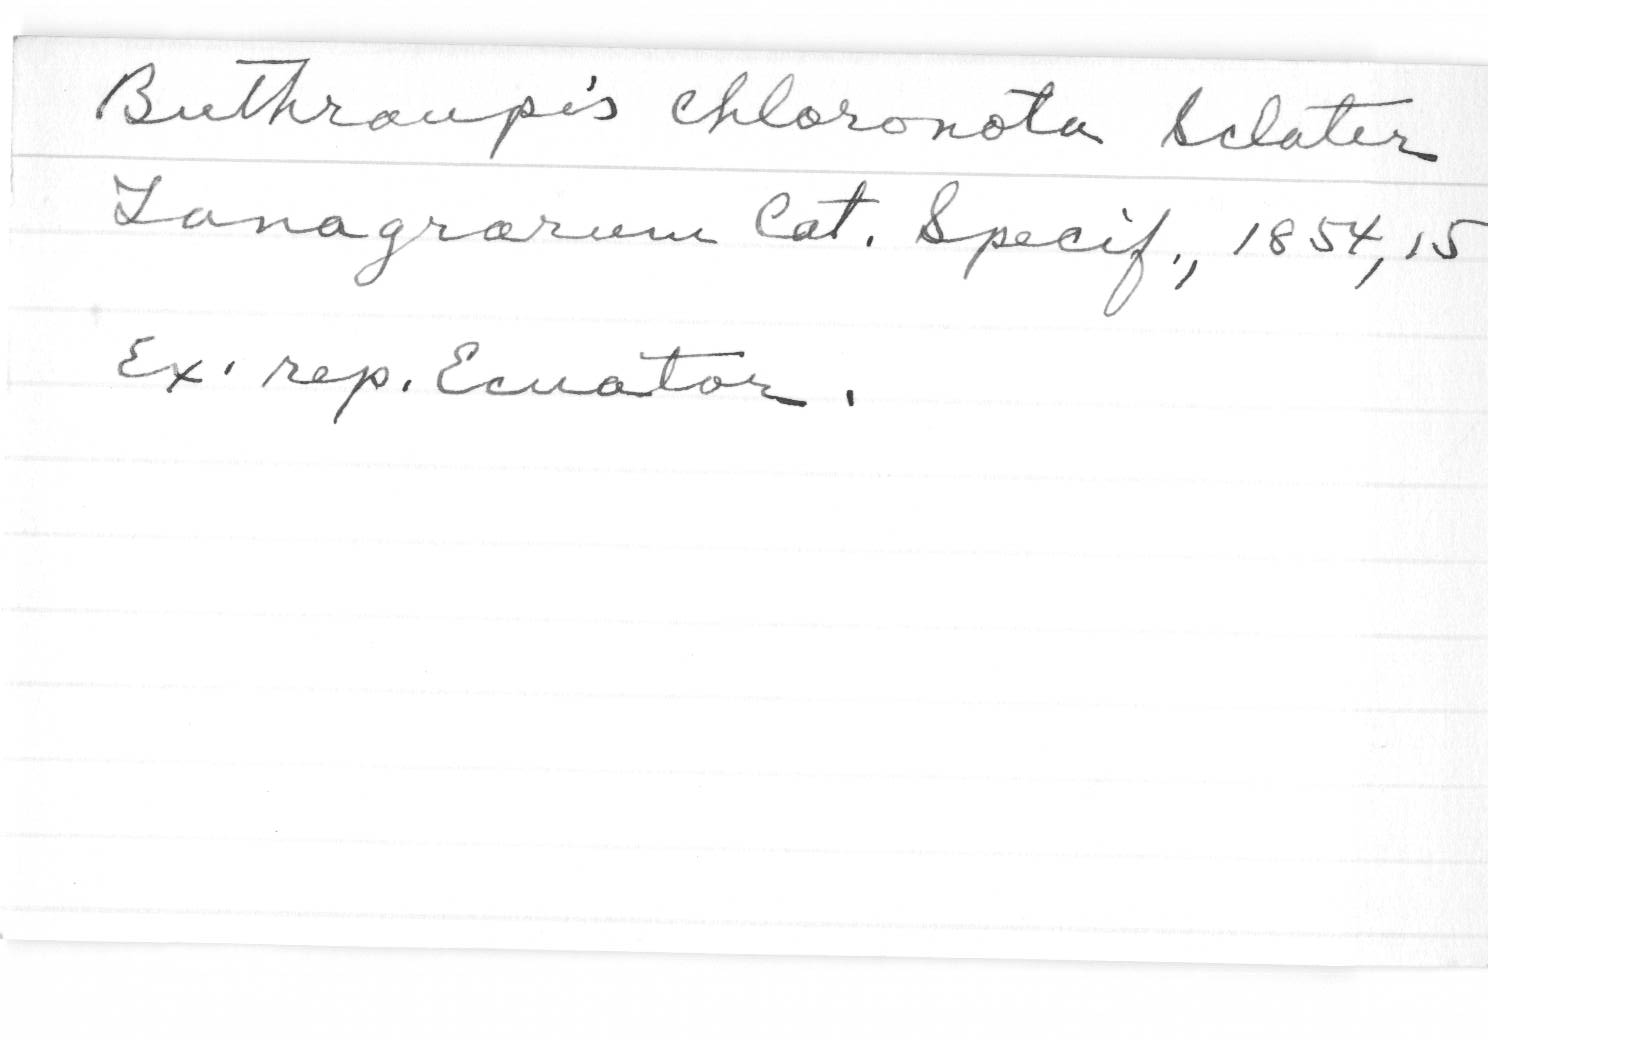 Buthraupis chloronota Sclater
Tanagrarum Cat. Specif., 1854, 15
Ex. rep. Ecuator.